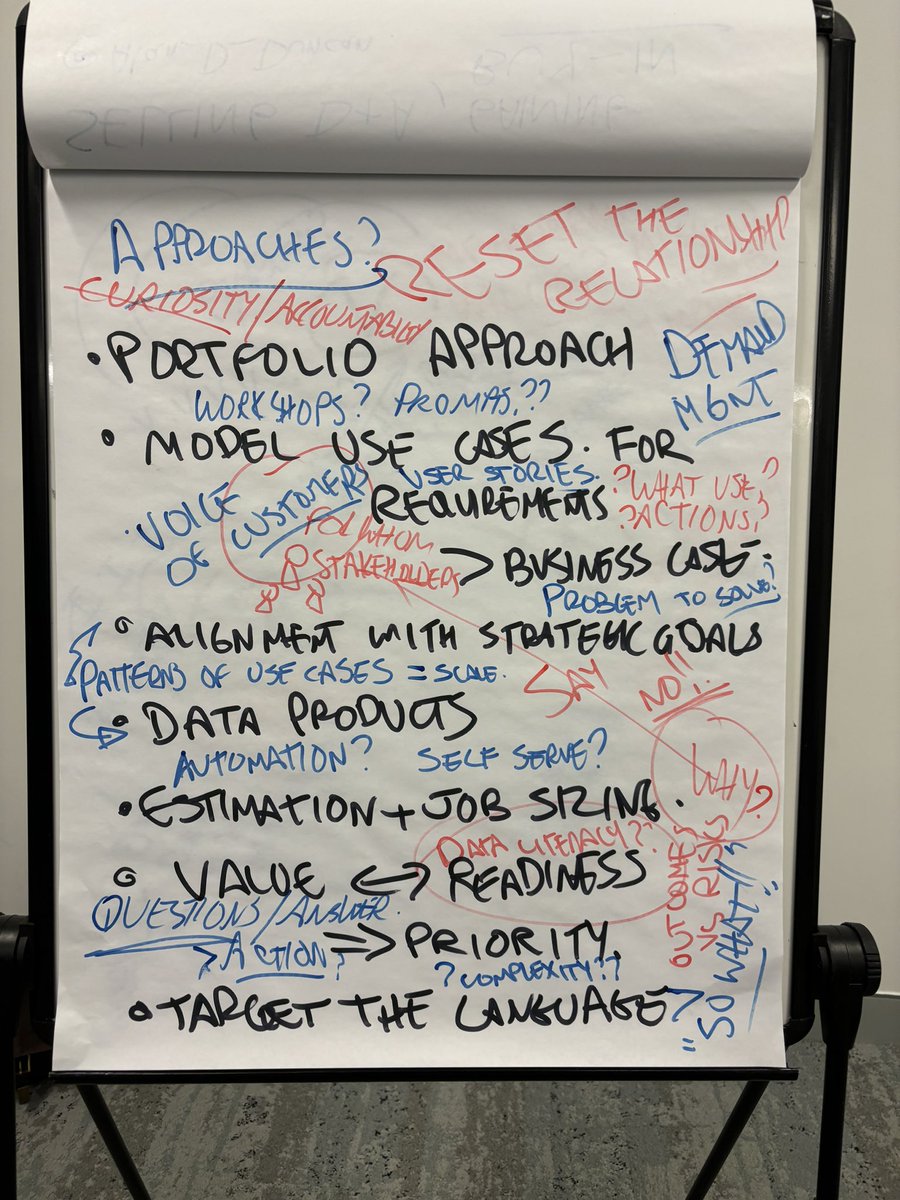 SELLING DATA, GAINING
BUY-IN
@Alan_D_Duncan
APPROACHES?
RESET THE
RELATIONSHIP
CURIOSITY/ACCOUNTABILITY
• PORTFOLIO APPROACH
DEMAND
MGMT
WORKSHOPS? PROMAS.??
• MODEL USE CASES. FOR
USER STORIES.
REQUIREMENTS
?WHAT USE,?
?ACTIONS,?
• VOICE
OF CUSTOMERS
FOR WHOM
STAKEHOLDERS
> BUSINESS CASE.
PROBLEM TO SOLVE?
• ALIGNMENT WITH STRATEGIC GOALS
PATTERNS OF USE CASES = SCALE.
SAY
NO!!
• DATA PRODUCTS
AUTOMATION? SELF SERVE?
WHY?
• ESTIMATION + JOB SIZING.
DATA LITERACY??
• VALUE <-> READINESS
OUTCOMES
VS RISKS
QUESTIONS/ANSWER.
> ACTION?
=> PRIORITY
?COMPLEXITY??
• TARGET THE LANGUAGE
"SO WHAT"